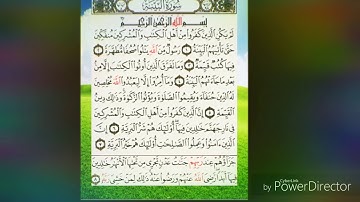 سُورَةُ الْبَيِّنَةِ
بِسْمِ اللَّهِ الرَّحْمَٰنِ الرَّحِيمِ
لَمْ يَكُنِ الَّذِينَ كَفَرُوا مِنْ أَهْلِ الْكِتَابِ وَالْمُشْرِكِينَ مُنفَكِّينَ
حَتَّىٰ تَأْتِيَهُمُ الْبَيِّنَةُ ۝ رَسُولٌ مِّنَ اللَّهِ يَتْلُو صُحُفًا مُّطَهَّرَةً ۝
فِيهَا كُتُبٌ قَيِّمَةٌ ۝ وَمَا تَفَرَّقَ الَّذِينَ أُوتُوا الْكِتَابَ إِلَّا مِن
بَعْدِ مَا جَاءَتْهُمُ الْبَيِّنَةُ ۝ وَمَا أُمِرُوا إِلَّا لِيَعْبُدُوا اللَّهَ مُخْلِصِينَ
لَهُ الدِّينَ حُنَفَاءَ وَيُقِيمُوا الصَّلَاةَ وَيُؤْتُوا الزَّكَاةَ وَذَٰلِكَ دِينُ
الْقَيِّمَةِ ۝ إِنَّ الَّذِينَ كَفَرُوا مِنْ أَهْلِ الْكِتَابِ وَالْمُشْرِكِينَ
فِي نَارِ جَهَنَّمَ خَالِدِينَ فِيهَا أُولَٰئِكَ هُمْ شَرُّ الْبَرِيَّةِ ۝ إِنَّ
الَّذِينَ آمَنُوا وَعَمِلُوا الصَّالِحَاتِ أُولَٰئِكَ هُمْ خَيْرُ الْبَرِيَّةِ ۝
جَزَاؤُهُمْ عِندَ رَبِّهِمْ جَنَّاتُ عَدْنٍ تَجْرِي مِن تَحْتِهَا الْأَنْهَارُ خَالِدِينَ
فِيهَا أَبَدًا رَّضِيَ اللَّهُ عَنْهُمْ وَرَضُوا عَنْهُ ذَٰلِكَ لِمَنْ خَشِيَ رَبَّهُ ۝
CyberLink
by PowerDirector